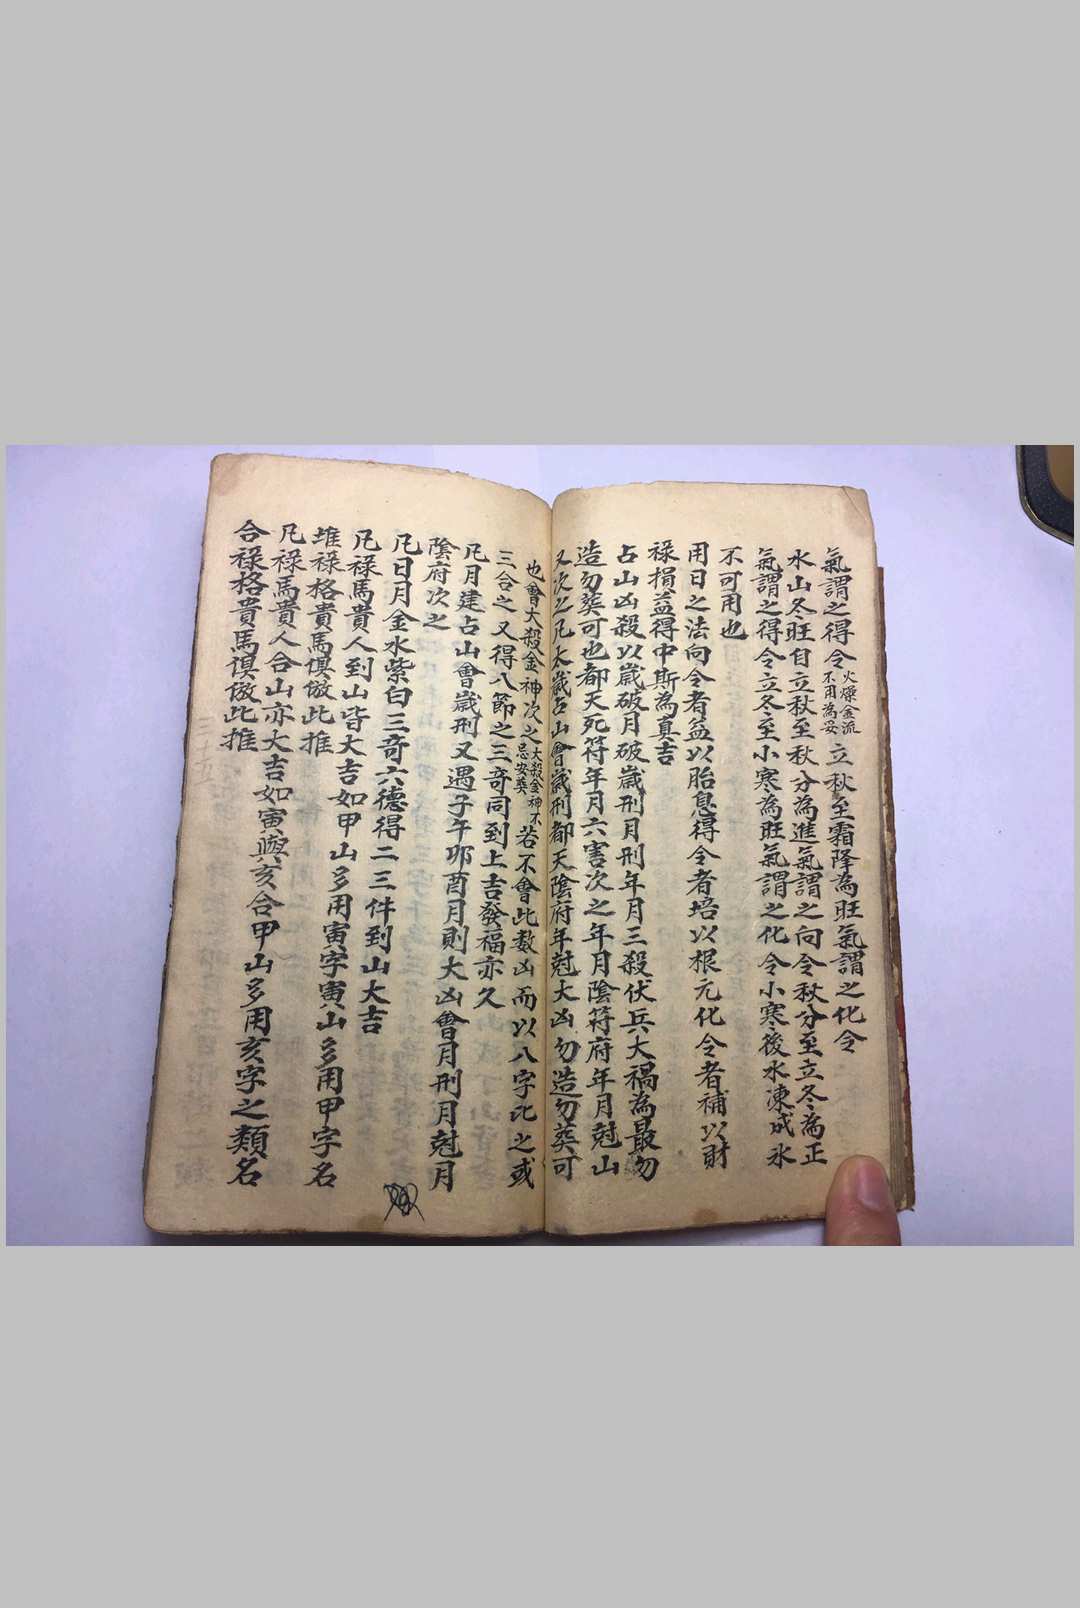 氣謂之得令火煉金流不用為妥立秋至霜降為旺氣謂之化令
水山冬旺自立秋至秋分為進氣謂之向令秋分至立冬為正
氣謂之得令立冬至小寒為旺氣謂之化令小寒後水凍成氷
不可用也
用日之法向令者益以胎息得令者培以根元化令者補以財
祿損益得中斯為真吉
占山凶殺以嵗破月破嵗刑月刑年月三殺伏兵大禍為最勿
造勿葵可也都天死符年月六害次之年月陰符府年月尅山
又次之凡太嵗占山會嵗刑都天陰府年尅大凶勿造勿葵可
也會大殺金神次之大殺金神不忌安葵若不會此数凶而以八字比之或
三合之又得八節之三竒同到上吉發福亦久
凡月建占山會嵗刑又遇子午卯酉月則大凶會月刑月尅月
陰府次之
凡日月金水紫白三竒六德得二三件到山大吉
凡祿馬貴人到山皆大吉如甲山多用寅字寅山多用甲字名
堆祿格貴馬俱倣此推
凡祿馬貴人合山亦大吉如寅與亥合甲山多用亥字之類名
合祿格貴馬俱倣此推